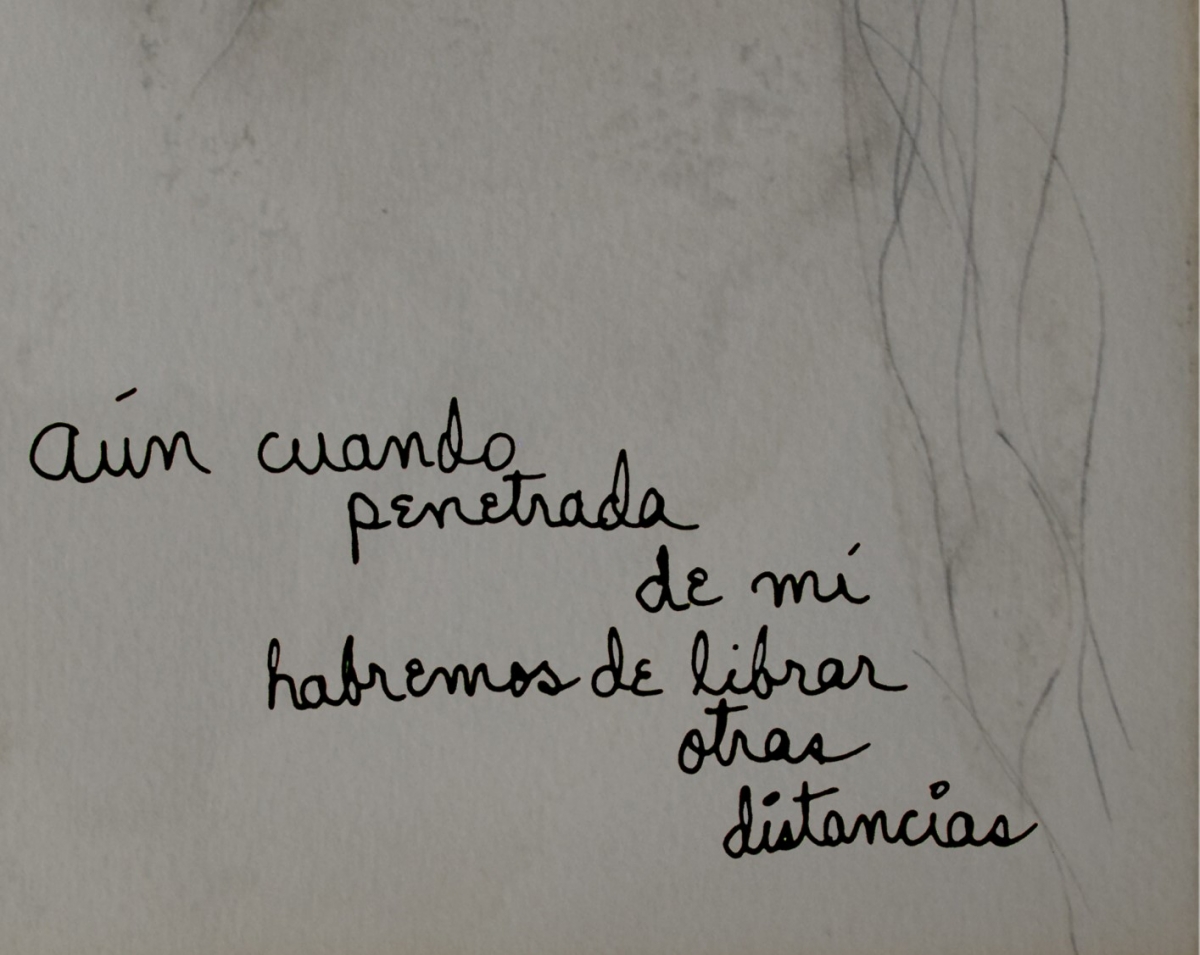 aún cuando
penetrada
de mí
habremos de librar
otras
distancias